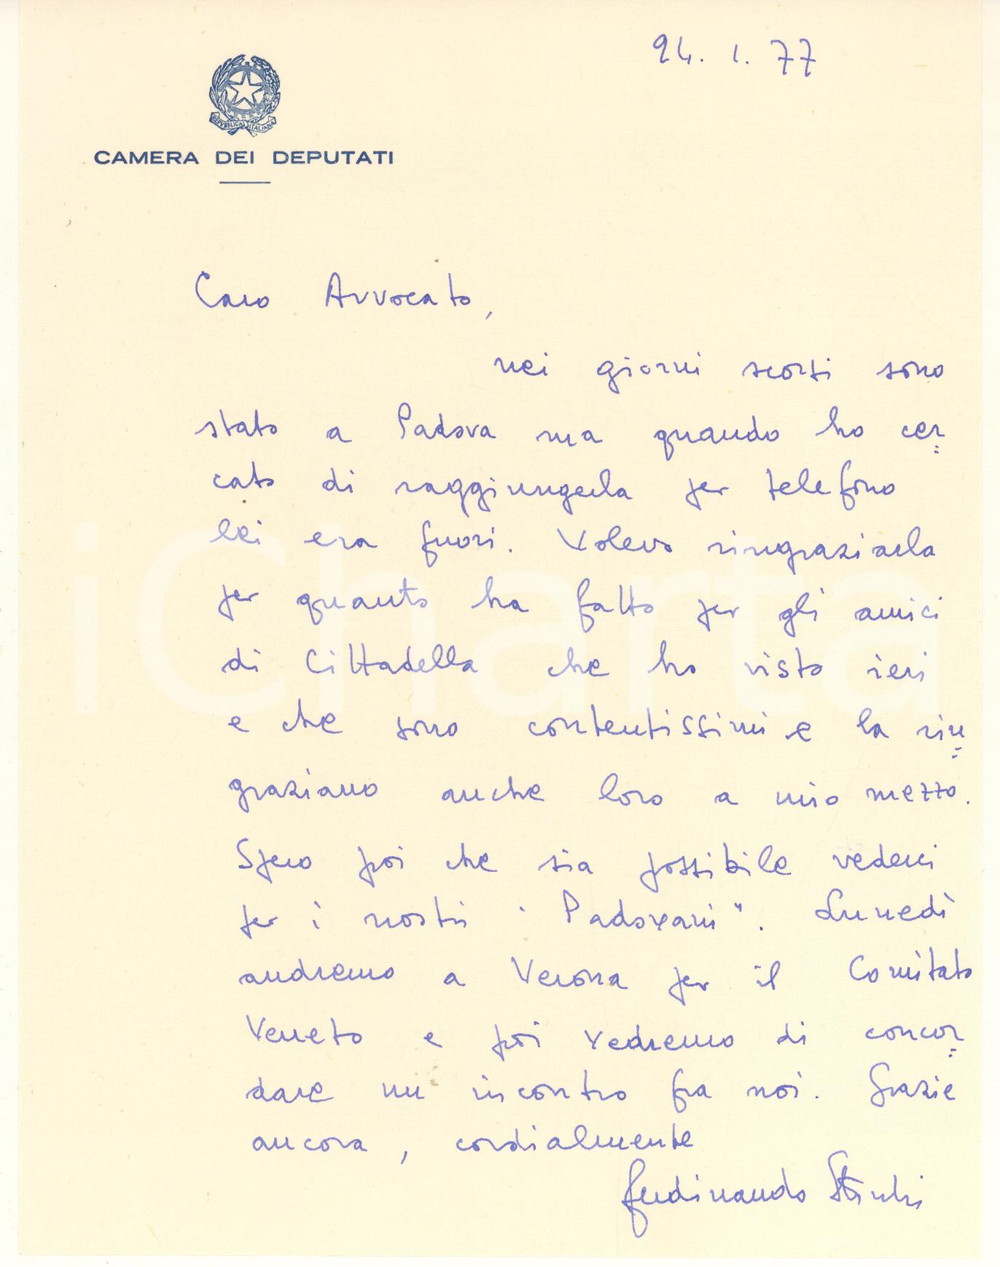 24. 1. 77
REPVBBLICA ITALIANA
CAMERA DEI DEPUTATI
Caro Avvocato,
nei giorni scorsi sono
stato a Padova ma quando ho cer
cato di raggiungerla per telefono
lei era fuori. Volevo ringraziarla
per quanto ha fatto per gli amici
di Cittadella che ho visto ieri
e che sono contentissimi e la rin
graziano anche loro a mio mezzo.
Spero poi che sia possibile vederci
per i nostri "Padovani". Lunedì
andremo a Verona per il Comitato
Veneto e poi vedremo di concor
dare un incontro fra noi. Grazie
ancora, cordialmente
Ferdinando
iCharta